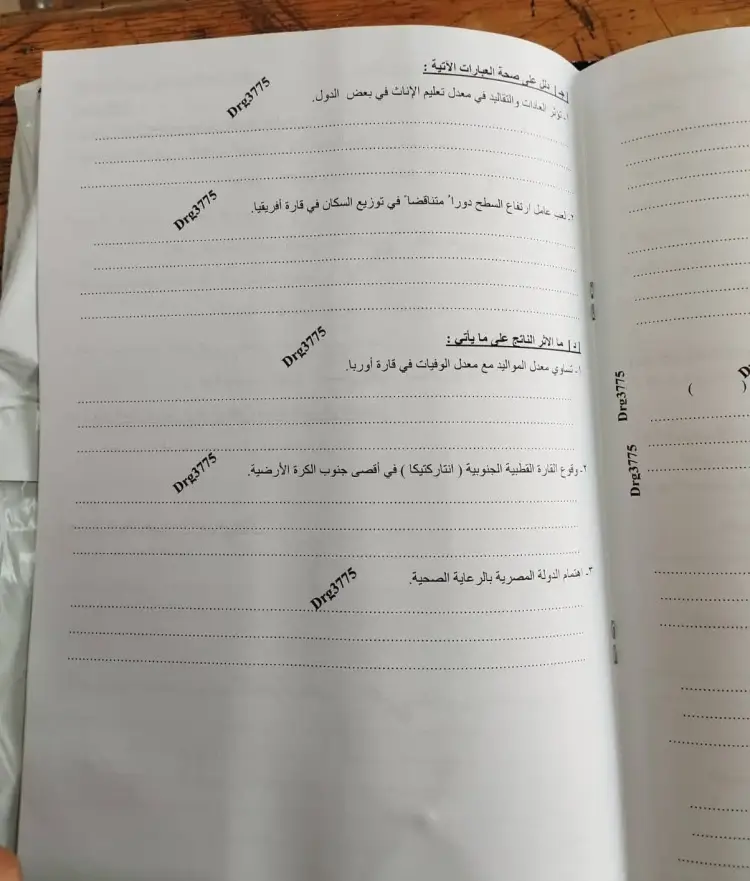 [ج] دلل على صحة العبارات الآتية :
١. تؤثر العادات والتقاليد في معدل تعليم الإناث في بعض الدول.
Drg3775
٢. لعب عامل ارتفاع السطح دوراً متناقضاً في توزيع السكان في قارة أفريقيا.
Drg3775
[د] ما الاثر الناتج على ما يأتي :
Drg3775
١. تساوي معدل المواليد مع معدل الوفيات في قارة أوربا.
٢- وقوع القارة القطبية الجنوبية ( انتاركتيكا ) في أقصى جنوب الكرة الأرضية.
Drg3775
٣- اهتمام الدولة المصرية بالرعاية الصحية.
Drg3775
Drg3775
( )
Drg3775